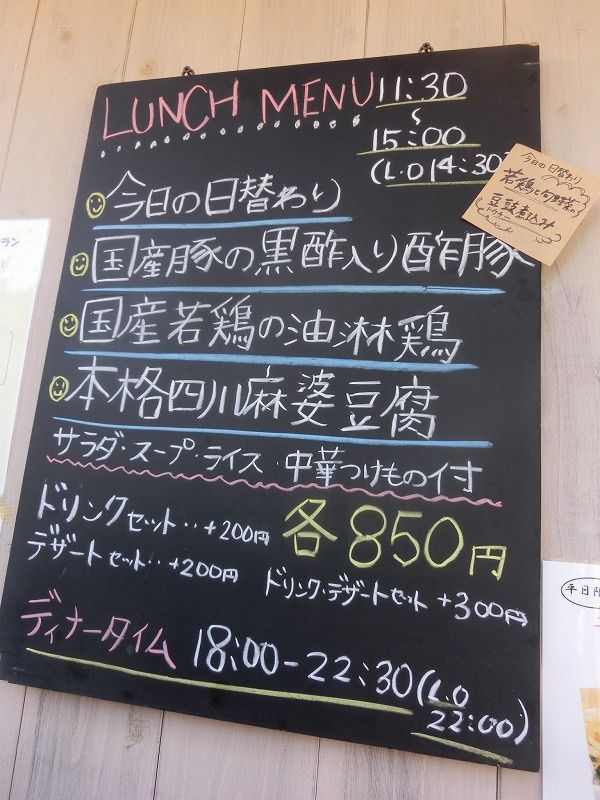 LUNCH MENU 11:30
~
15:00
(L.O 14:30)
今日の日替わり
国産豚の黒酢入り酢豚
国産若鶏の油淋鶏
本格四川麻婆豆腐
サラダ・スープ・ライス・中華つけもの付
ドリンクセット‥+200円
各850円
デザートセット‥+200円
ドリンク・デザートセット +300円
ディナータイム 18:00-22:30(L.O
22:00)
今日の日替わり
若鶏と旬野菜の
豆豉煮込み
ラン
平日